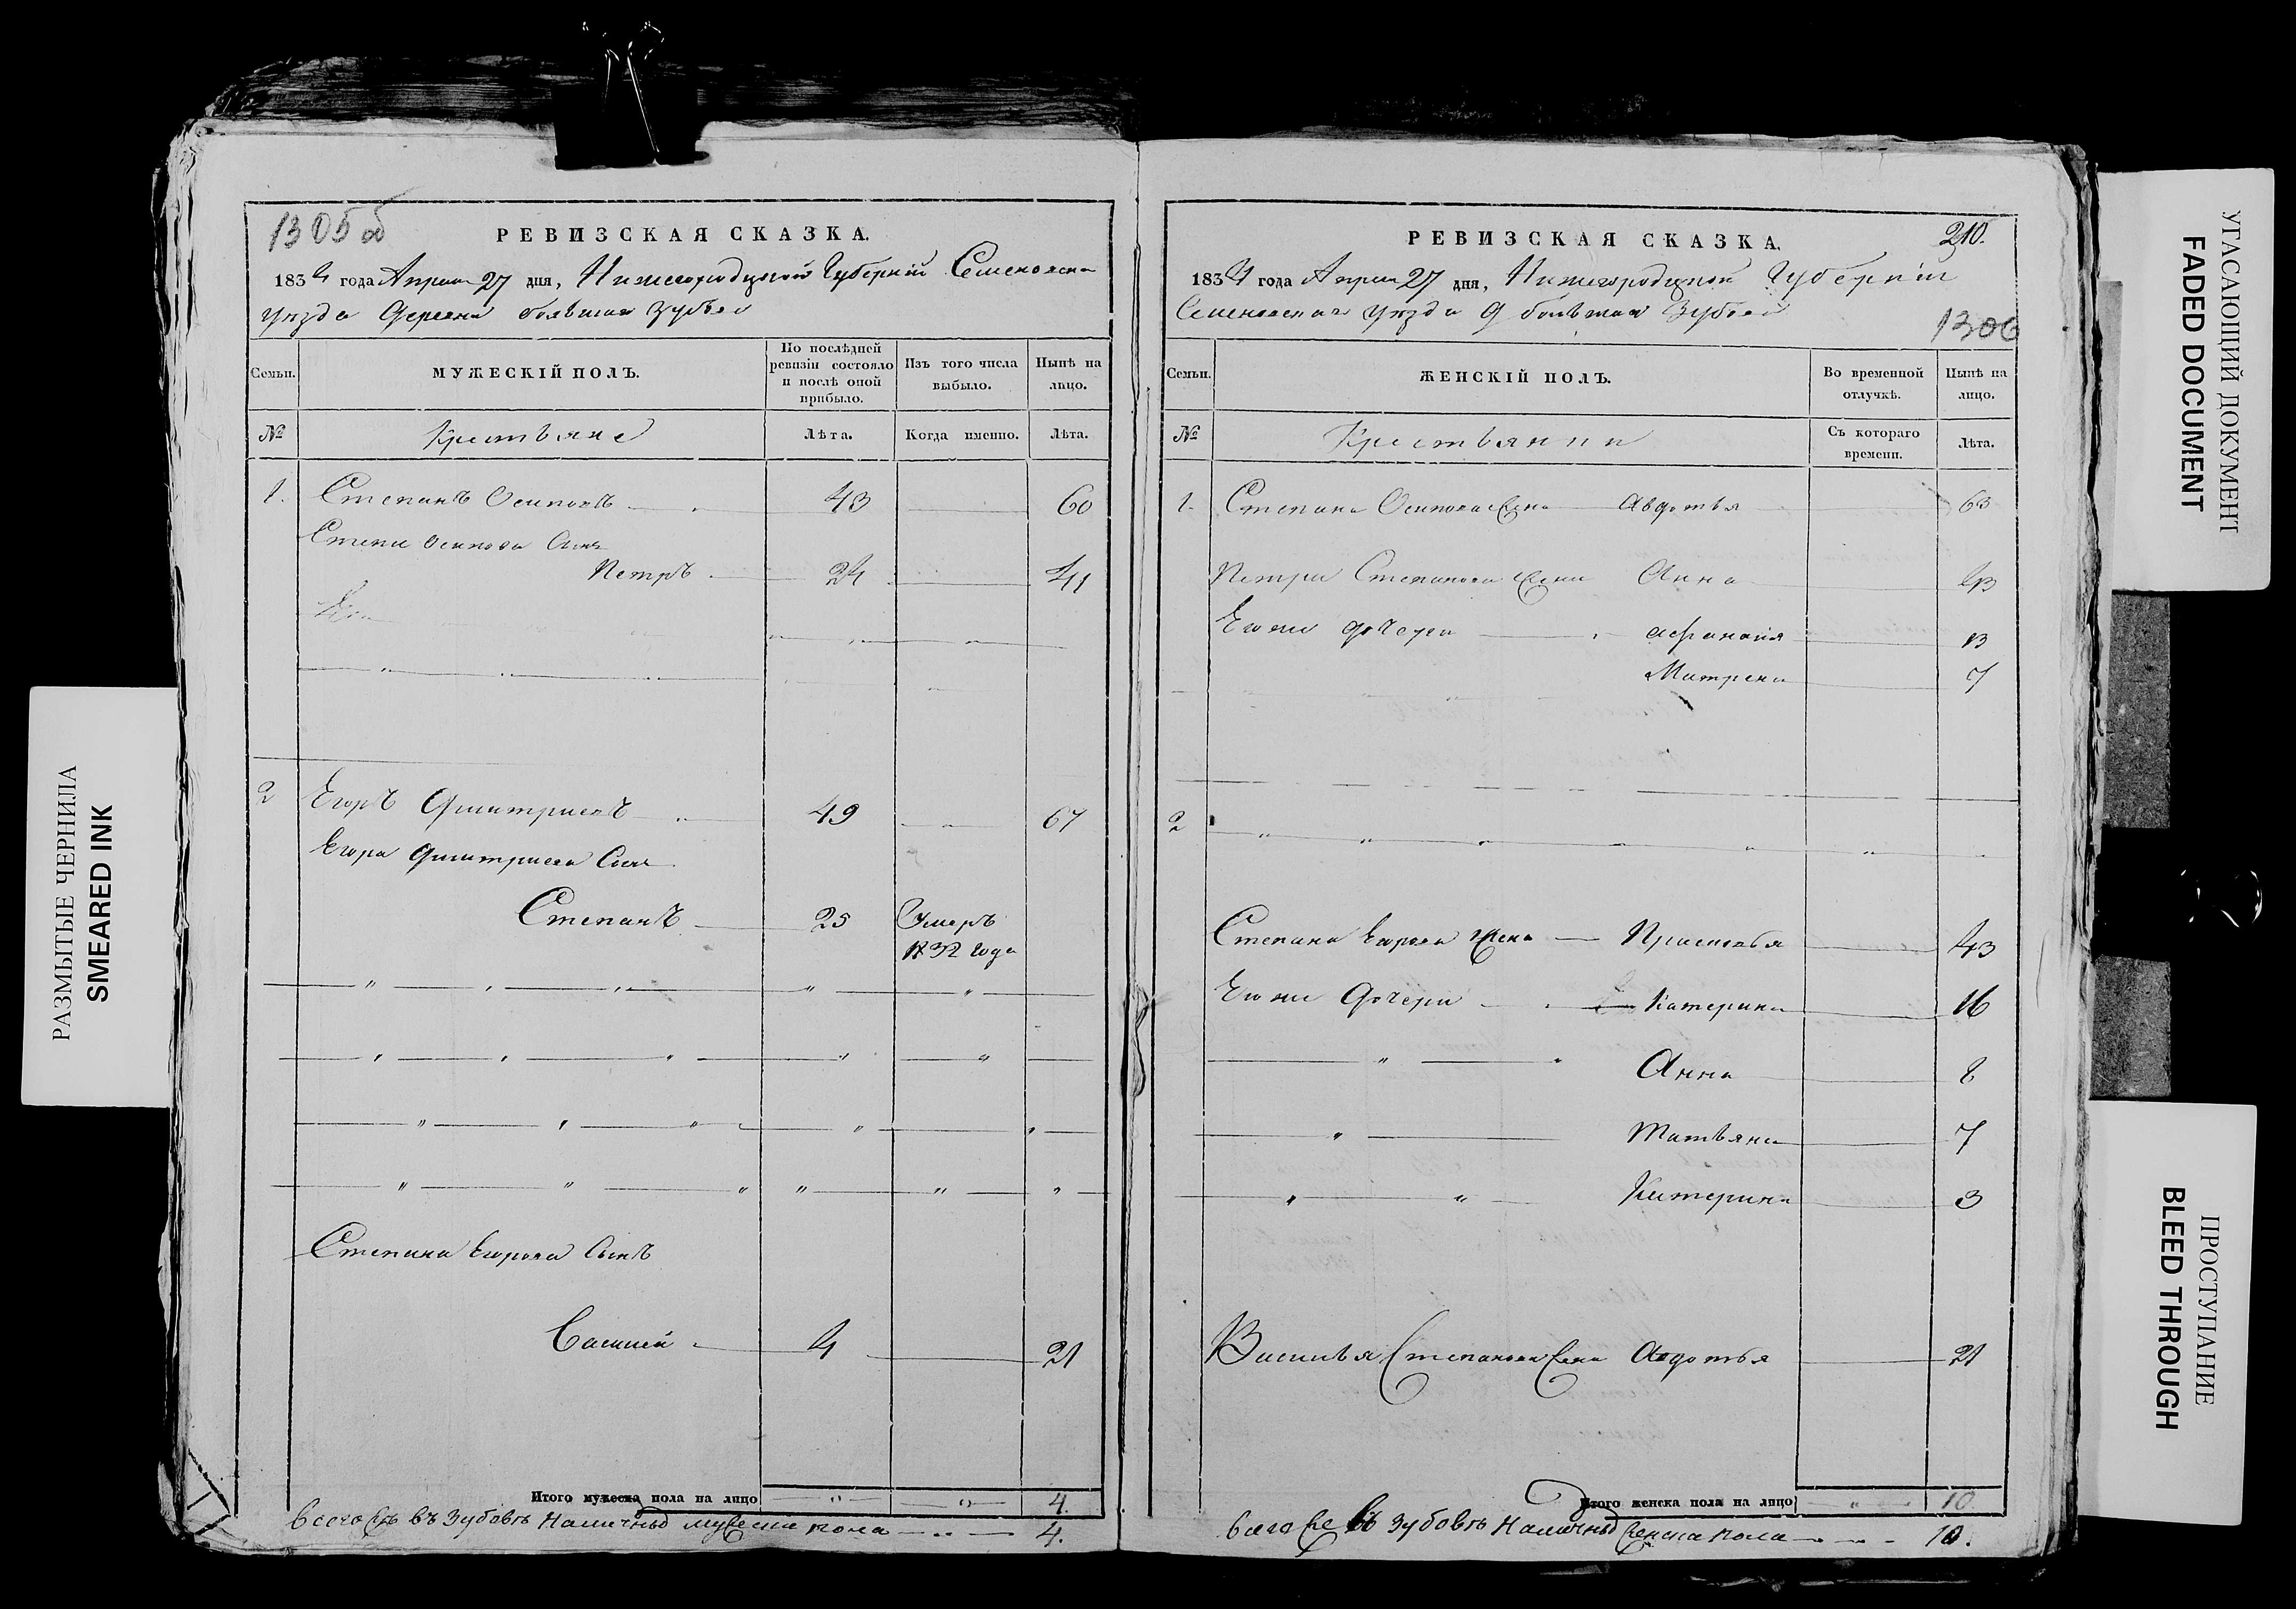 1305 об
РЕВИЗСКАЯ СКАЗКА.
1834 года Апреля 27 дня, Нижегородской Губернии Семеновска
уезда деревни большая Зубова
Семьи.
МУЖЕСКІЙ ПОЛЪ.
По послѣдней ревизіи состояло и послѣ оной прибыло.
Изъ того числа выбыло.
Нынѣ на лицо.
№
Крестьяне
Лѣта.
Когда именно.
Лѣта.
1. Степанъ Осиповъ 43 60
Степана Осипова Сынъ
Петръ 24 41
2 Егоръ Дмитриевъ 49 67
Егора Дмитриева Сынъ
Степанъ 25 Умеръ
1832 года
Степана Егорова Сынъ
Василей 4 21
Итого мужеска пола на лицо 4.
всего въ Зубовѣ наличныхъ мужеска пола 4.
РЕВИЗСКАЯ СКАЗКА.
210.
1834 года Апреля 27 дня, Нижегородской Губернии
Семеновскаго уезда д большая Зубова
1306
Семьи.
ЖЕНСКІЙ ПОЛЪ.
Во временной отлучкѣ.
Нынѣ на лицо.
№
Крестьянки
Съ котораго времени.
Лѣта.
1. Степана Осипова жена Авдотья 63
Петра Степанова жена Анна 43
Его же дочери 13
Матрена 7
2
Степана Егорова жена Прасковья 43
Его же дочери Катерина 16
Анна 8
Татьяна 7
Катерина 3
Василья Степанова жена Авдотья 21
Итого женска пола на лицо 10
всего же въ Зубовѣ наличныхъ женска пола 10.
УГАСАЮЩИЙ ДОКУМЕНТ
FADED DOCUMENT
РАЗМЫТЫЕ ЧЕРНИЛА
SMEARED INK
ПРОСТУПАНИЕ
BLEED THROUGH